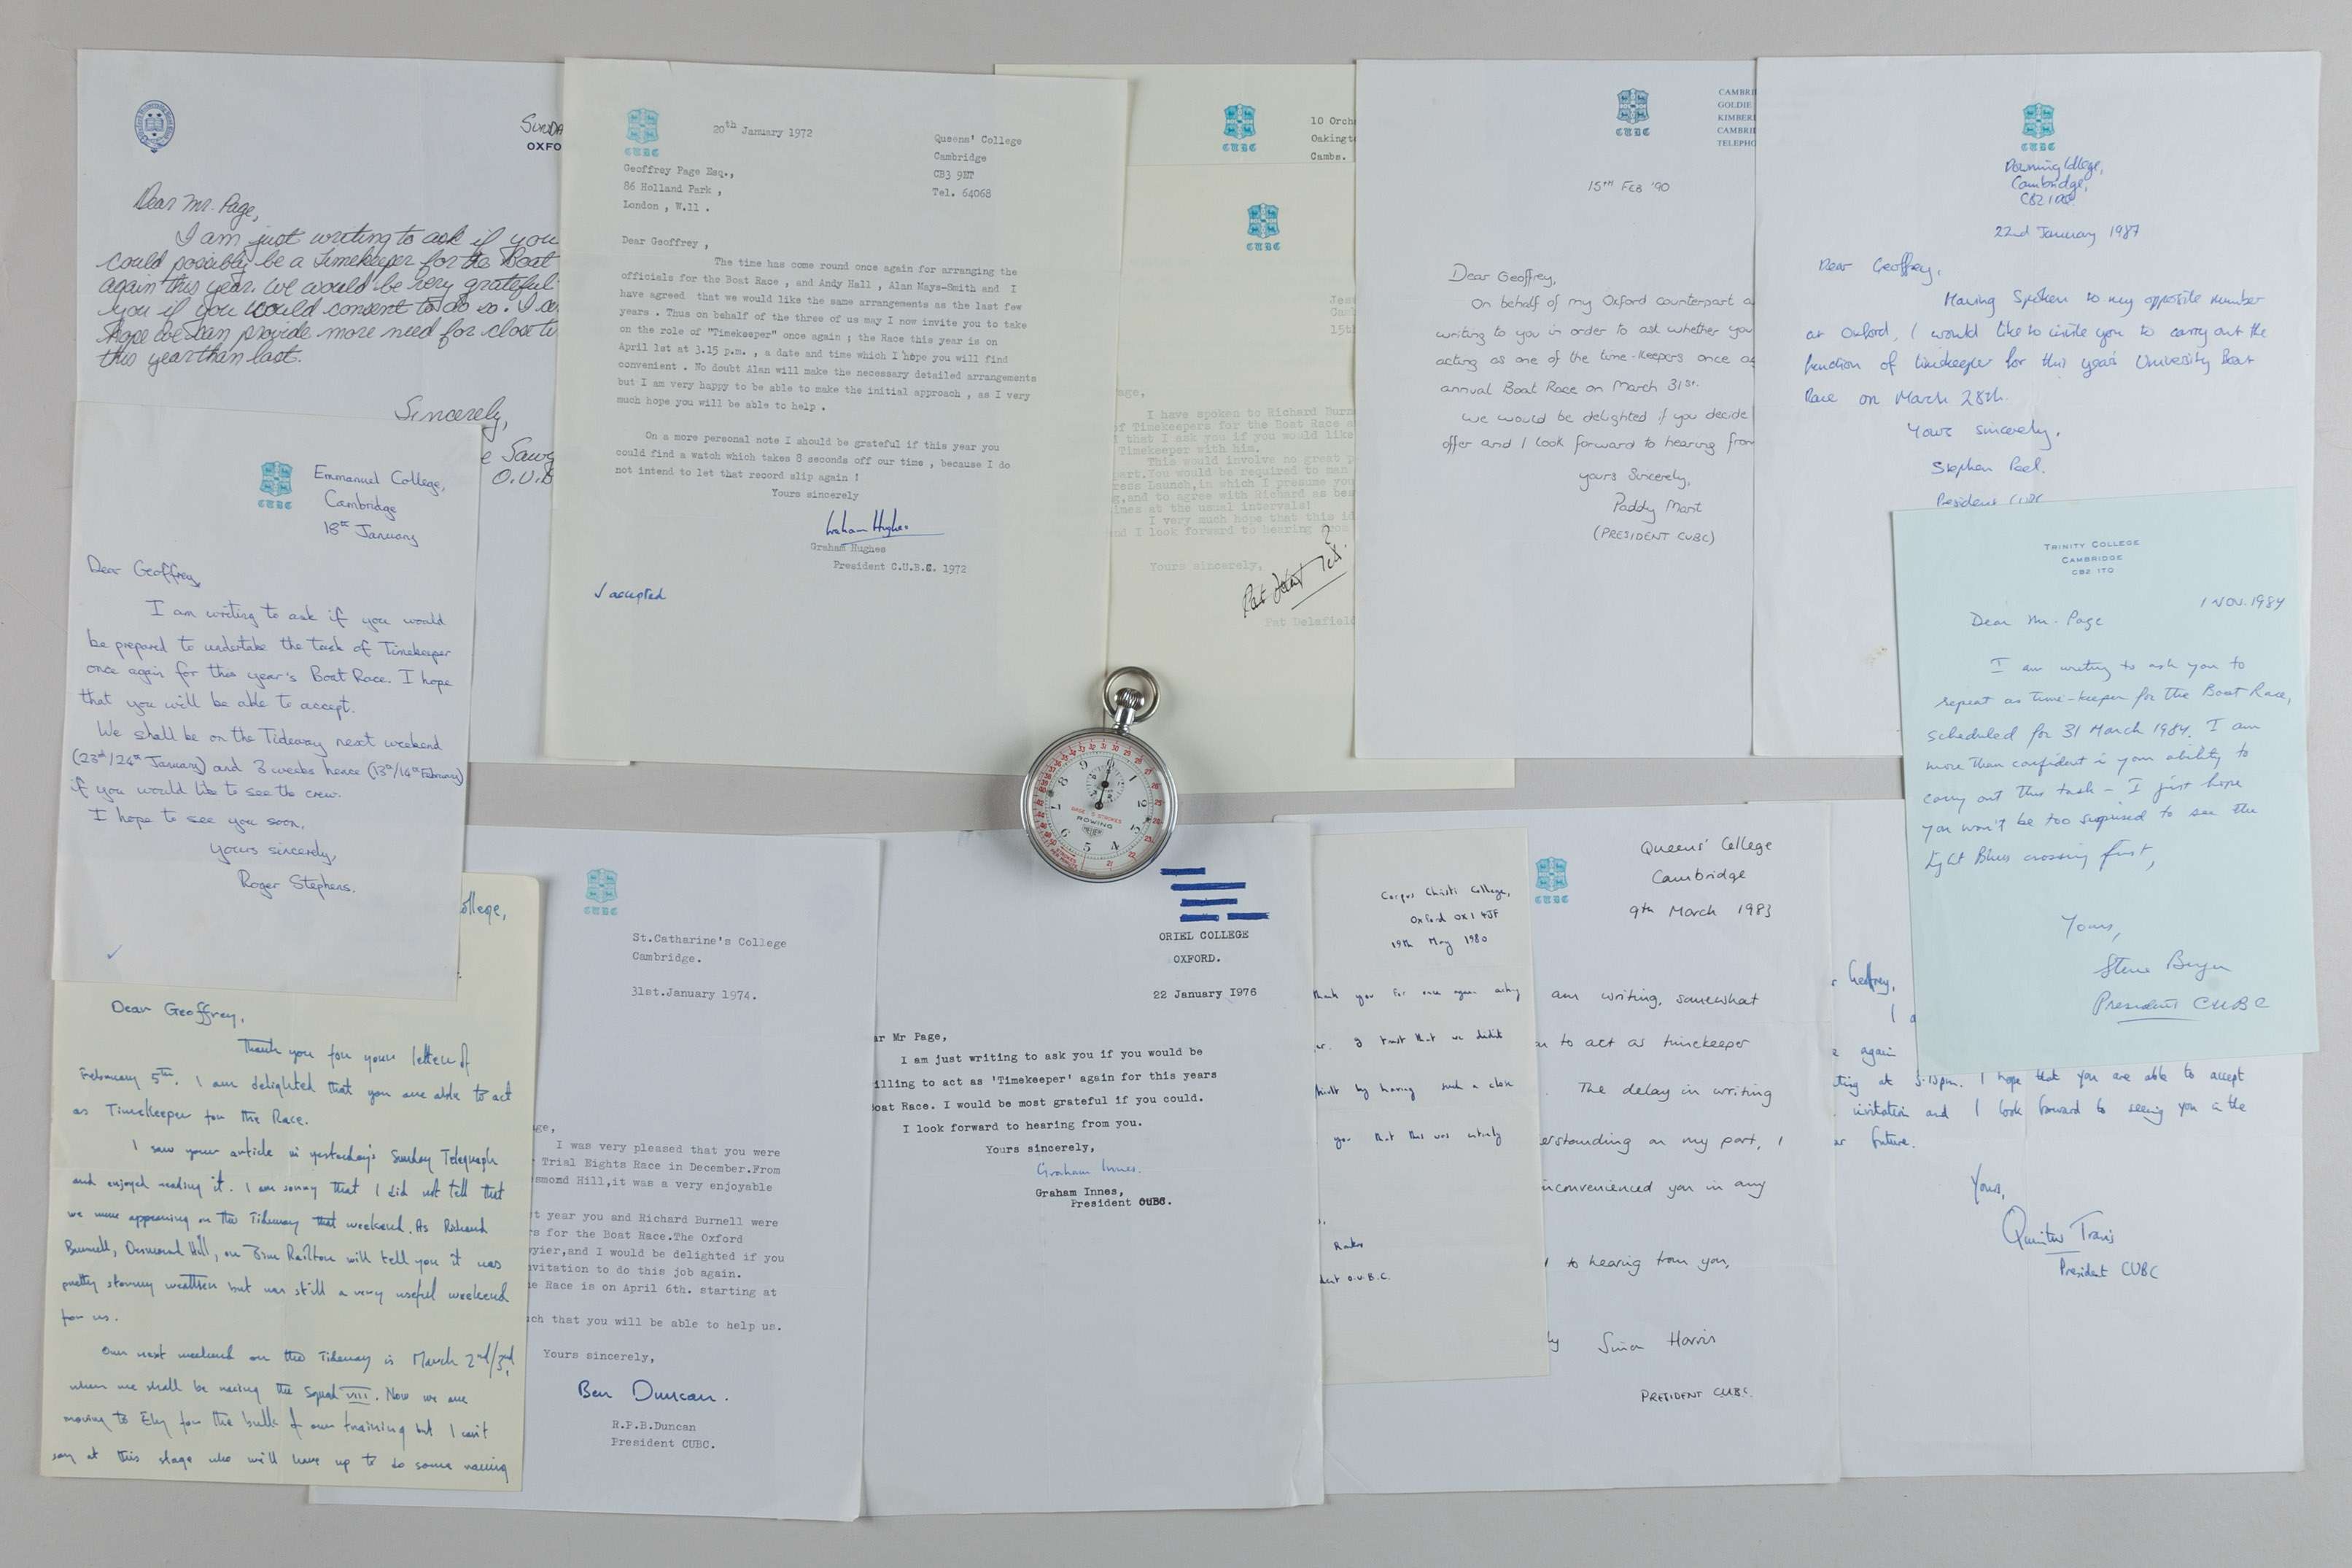 SUNDA
OXFO
Dear Mr. Page,
I am just writing to ask if you
could possibly be a Timekeeper for the Boat
again this year. We would be very grateful
you if you would consent to do so. I
hope we can provide more need for close
this year than last.
Sincerely,
O.U.B
CUBC
20th January 1972
Queens' College
Cambridge
CB3 9ET
Tel. 64068
Geoffrey Page Esq.,
86 Holland Park ,
London , W.11 .
Dear Geoffrey ,
The time has come round once again for arranging the
officials for the Boat Race , and Andy Hall , Alan Mays-Smith and I
have agreed that we would like the same arrangements as the last few
years . Thus on behalf of the three of us may I now invite you to take
on the role of "Timekeeper" once again ; the Race this year is on
April 1st at 3.15 p.m. , a date and time which I hope you will find
convenient . No doubt Alan will make the necessary detailed arrangements
but I am very happy to be able to make the initial approach , as I very
much hope you will be able to help .
On a more personal note I should be grateful if this year you
could find a watch which takes 8 seconds off our time , because I do
not intend to let that record slip again !
Yours sincerely
Graham Hughes
Graham Hughes
President C.U.B.C. 1972
√ accepted
CUBC
10 Orch
Oakingt
Cambs.
CUBC
Jes
Camb
15t
age,
I have spoken to Richard Burn
of Timekeepers for the Boat Race a
that I ask you if you would like
Timekeeper with him.
This would involve no great p
part.You would be required to man
ress Launch,in which I presume you
g,and to agree with Richard as bes
imes at the usual intervals!
I very much hope that this id
and I look forward to hearing
Yours sincerely,
Pat Delafield
CUBC
CAMBRI
GOLDIE
KIMBER
CAMBRI
TELEPHO
15TH FEB '90
Dear Geoffrey,
On behalf of my Oxford counterpart
writing to you in order to ask whether you
acting as one of the time-keepers once
annual Boat Race on March 31st.
We would be delighted if you decide
offer and I look forward to hearing from
Yours Sincerely,
Paddy Mant
(PRESIDENT CUBC)
CUBC
Downing College,
Cambridge,
CB2 1DQ
22nd January 1987
Dear Geoffrey,
Having Spoken to my opposite number
at Oxford, I would like to invite you to carry out the
function of timekeeper for this year's University Boat
Race on March 28th.
Yours sincerely,
Stephen Peel.
President CUBC
TRINITY COLLEGE
CAMBRIDGE
CB2 1TQ
1 NOV. 1984
Dear Mr. Page
I am writing to ask you to
repeat as time-keeper for the Boat Race,
scheduled for 31 March 1984. I am
more than confident in your ability to
carry out this task – I just hope
you won't be too surprised to see the
Light Blues crossing first,
Yours,
Steve Berger
President CUBC
CUBC
Emmanuel College,
Cambridge
18th January
Dear Geoffrey,
I am writing to ask if you would
be prepared to undertake the task of Timekeeper
once again for this year's Boat Race. I hope
that you will be able to accept.
We shall be on the Tideway next weekend
(23rd/24th January) and 3 weeks hence (13th/14th February)
if you would like to see the crew.
I hope to see you soon,
Yours sincerely,
Roger Stephens.
ollege,
Dear Geoffrey,
Thank you for your letter of
February 5th. I am delighted that you are able to act
as Timekeeper for the Race.
I saw your article in yesterday's Sunday Telegraph
and enjoyed reading it. I am sorry that I did not tell that
we were appearing on the Tideway that weekend. As Richard
Burnell, Desmond Hill, or Jim Railton will tell you it was
pretty stormy weather but was still a very useful weekend
for us.
Our next weekend on the Tideway is March 2nd/3rd,
when we shall be racing the squad VIII. Now we are
moving to Ely for the bulk of our training but I can't
say at this stage who will have up to do some racing
CUBC
St.Catharine's College
Cambridge.
31st.January 1974.
ge,
I was very pleased that you were
Trial Eights Race in December.From
smond Hill,it was a very enjoyable
t year you and Richard Burnell were
rs for the Boat Race.The Oxford
yier,and I would be delighted if you
nvitation to do this job again.
e Race is on April 6th. starting at
uch that you will be able to help us.
Yours sincerely,
Ben Duncan.
R.P.B.Duncan
President CUBC.
ORIEL COLLEGE
OXFORD.
22 January I976
ar Mr Page,
I am just writing to ask you if you would be
illing to act as 'Timekeeper' again for this years
Boat Race. I would be most grateful if you could.
I look forward to hearing from you.
Yours sincerely,
Graham Innes.
Graham Innes,
President OUBC.
9 0 1
8
10
15
6
5 4
BASE : 5 STROKES
ROWING
HEUER
Corpus Christi College,
Oxford OX1 4JF
19th May 1980
thank you for once again acting
I trust that we didn't
by having such a close
you that this was entirely
dent O.U.B.C.
CUBC
Queens' College
Cambridge
9th March 1983
am writing, somewhat
to act as timekeeper
The delay in writing
erstanding on my part, I
inconvenienced you in any
to hearing from you,
Simon Harris
PRESIDENT CUBC.
Geoffrey,
I
again
ting at 3.15pm. I hope that you are able to accept
invitation and I look forward to seeing you in the
ar future.
Yours,
Quintus Travis
President CUBC